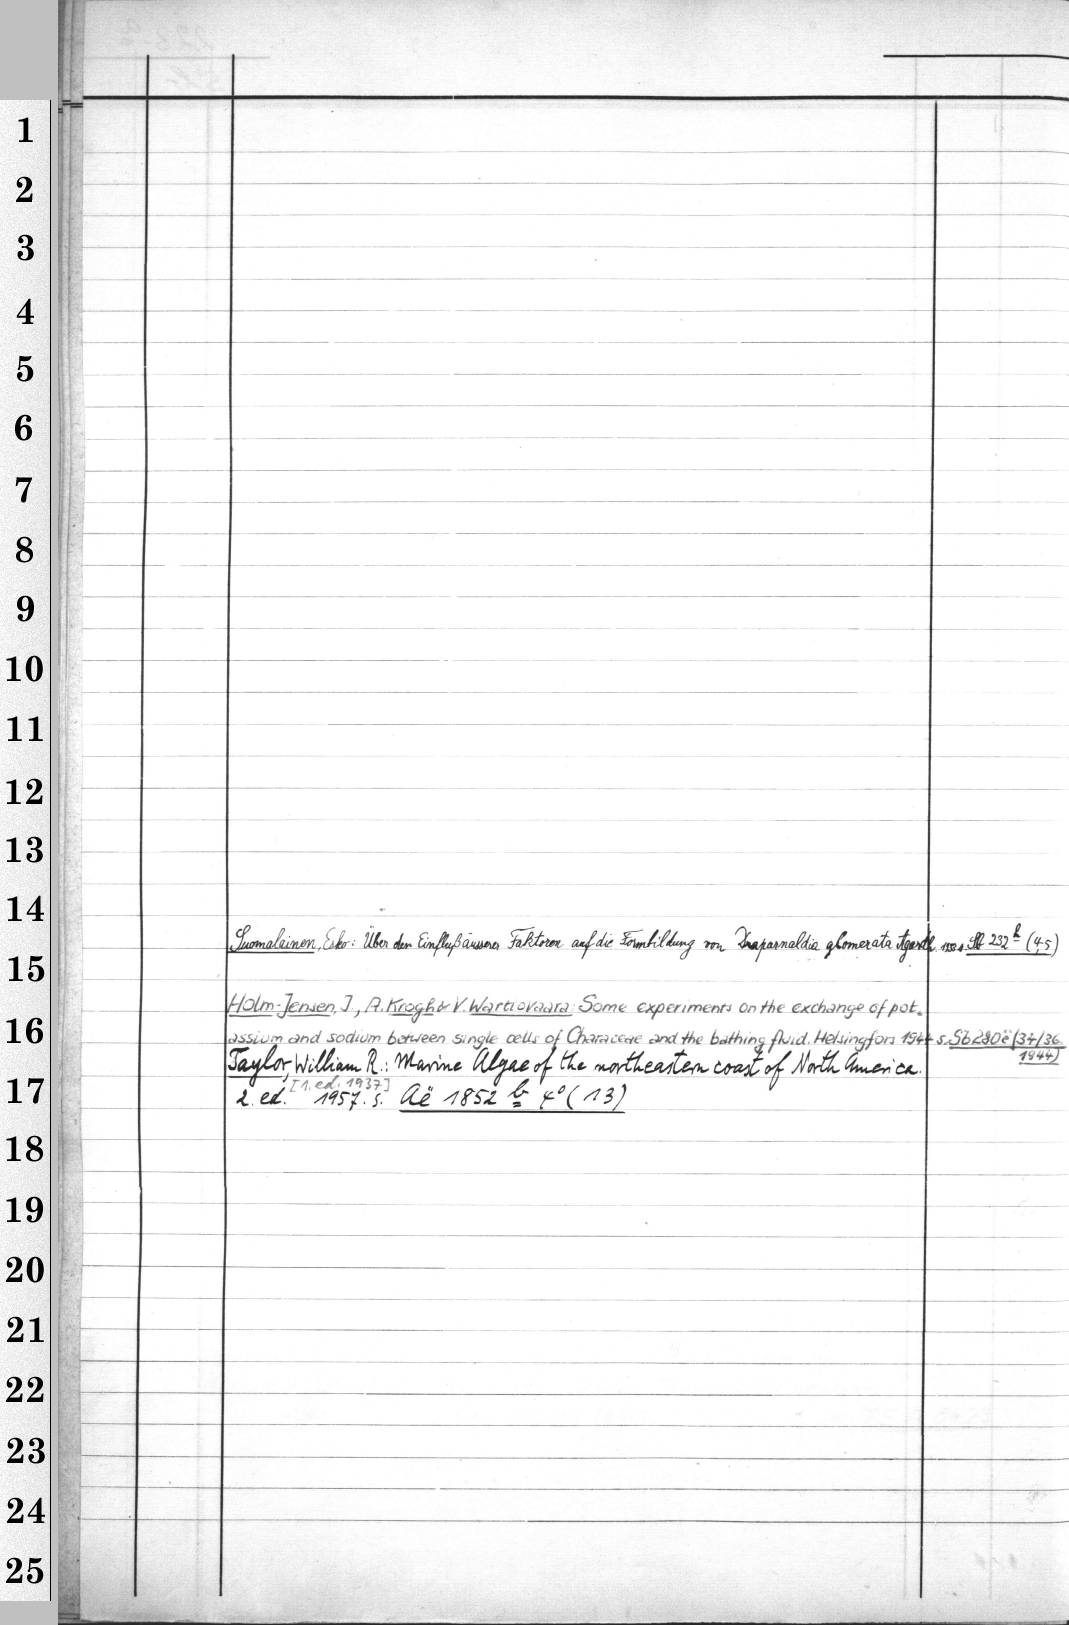 1
2
3
4
5
6
7
8
9
10
11
12
13
14
Suomalainen, Esko: Über den Einfluß äusserer Faktoren auf die Formbildung von Draparnaldia glomerata Agardh. s. Sb 232 h (4-5)
15
Holm-Jensen, J., A. Krogh & V. Wartiovaara: Some experiments on the exchange of pot-
16
assium and sodium between single cells of Characeae and the bathing fluid. Helsingfors 1944 s. Sb 280 ë (34/36
1944)
Taylor, William R.: Marine Algae of the northeastern coast of North America.
[1. ed. 1937]
17
2. ed. 1957. s. Aë 1852 b 4° (13)
18
19
20
21
22
23
24
25